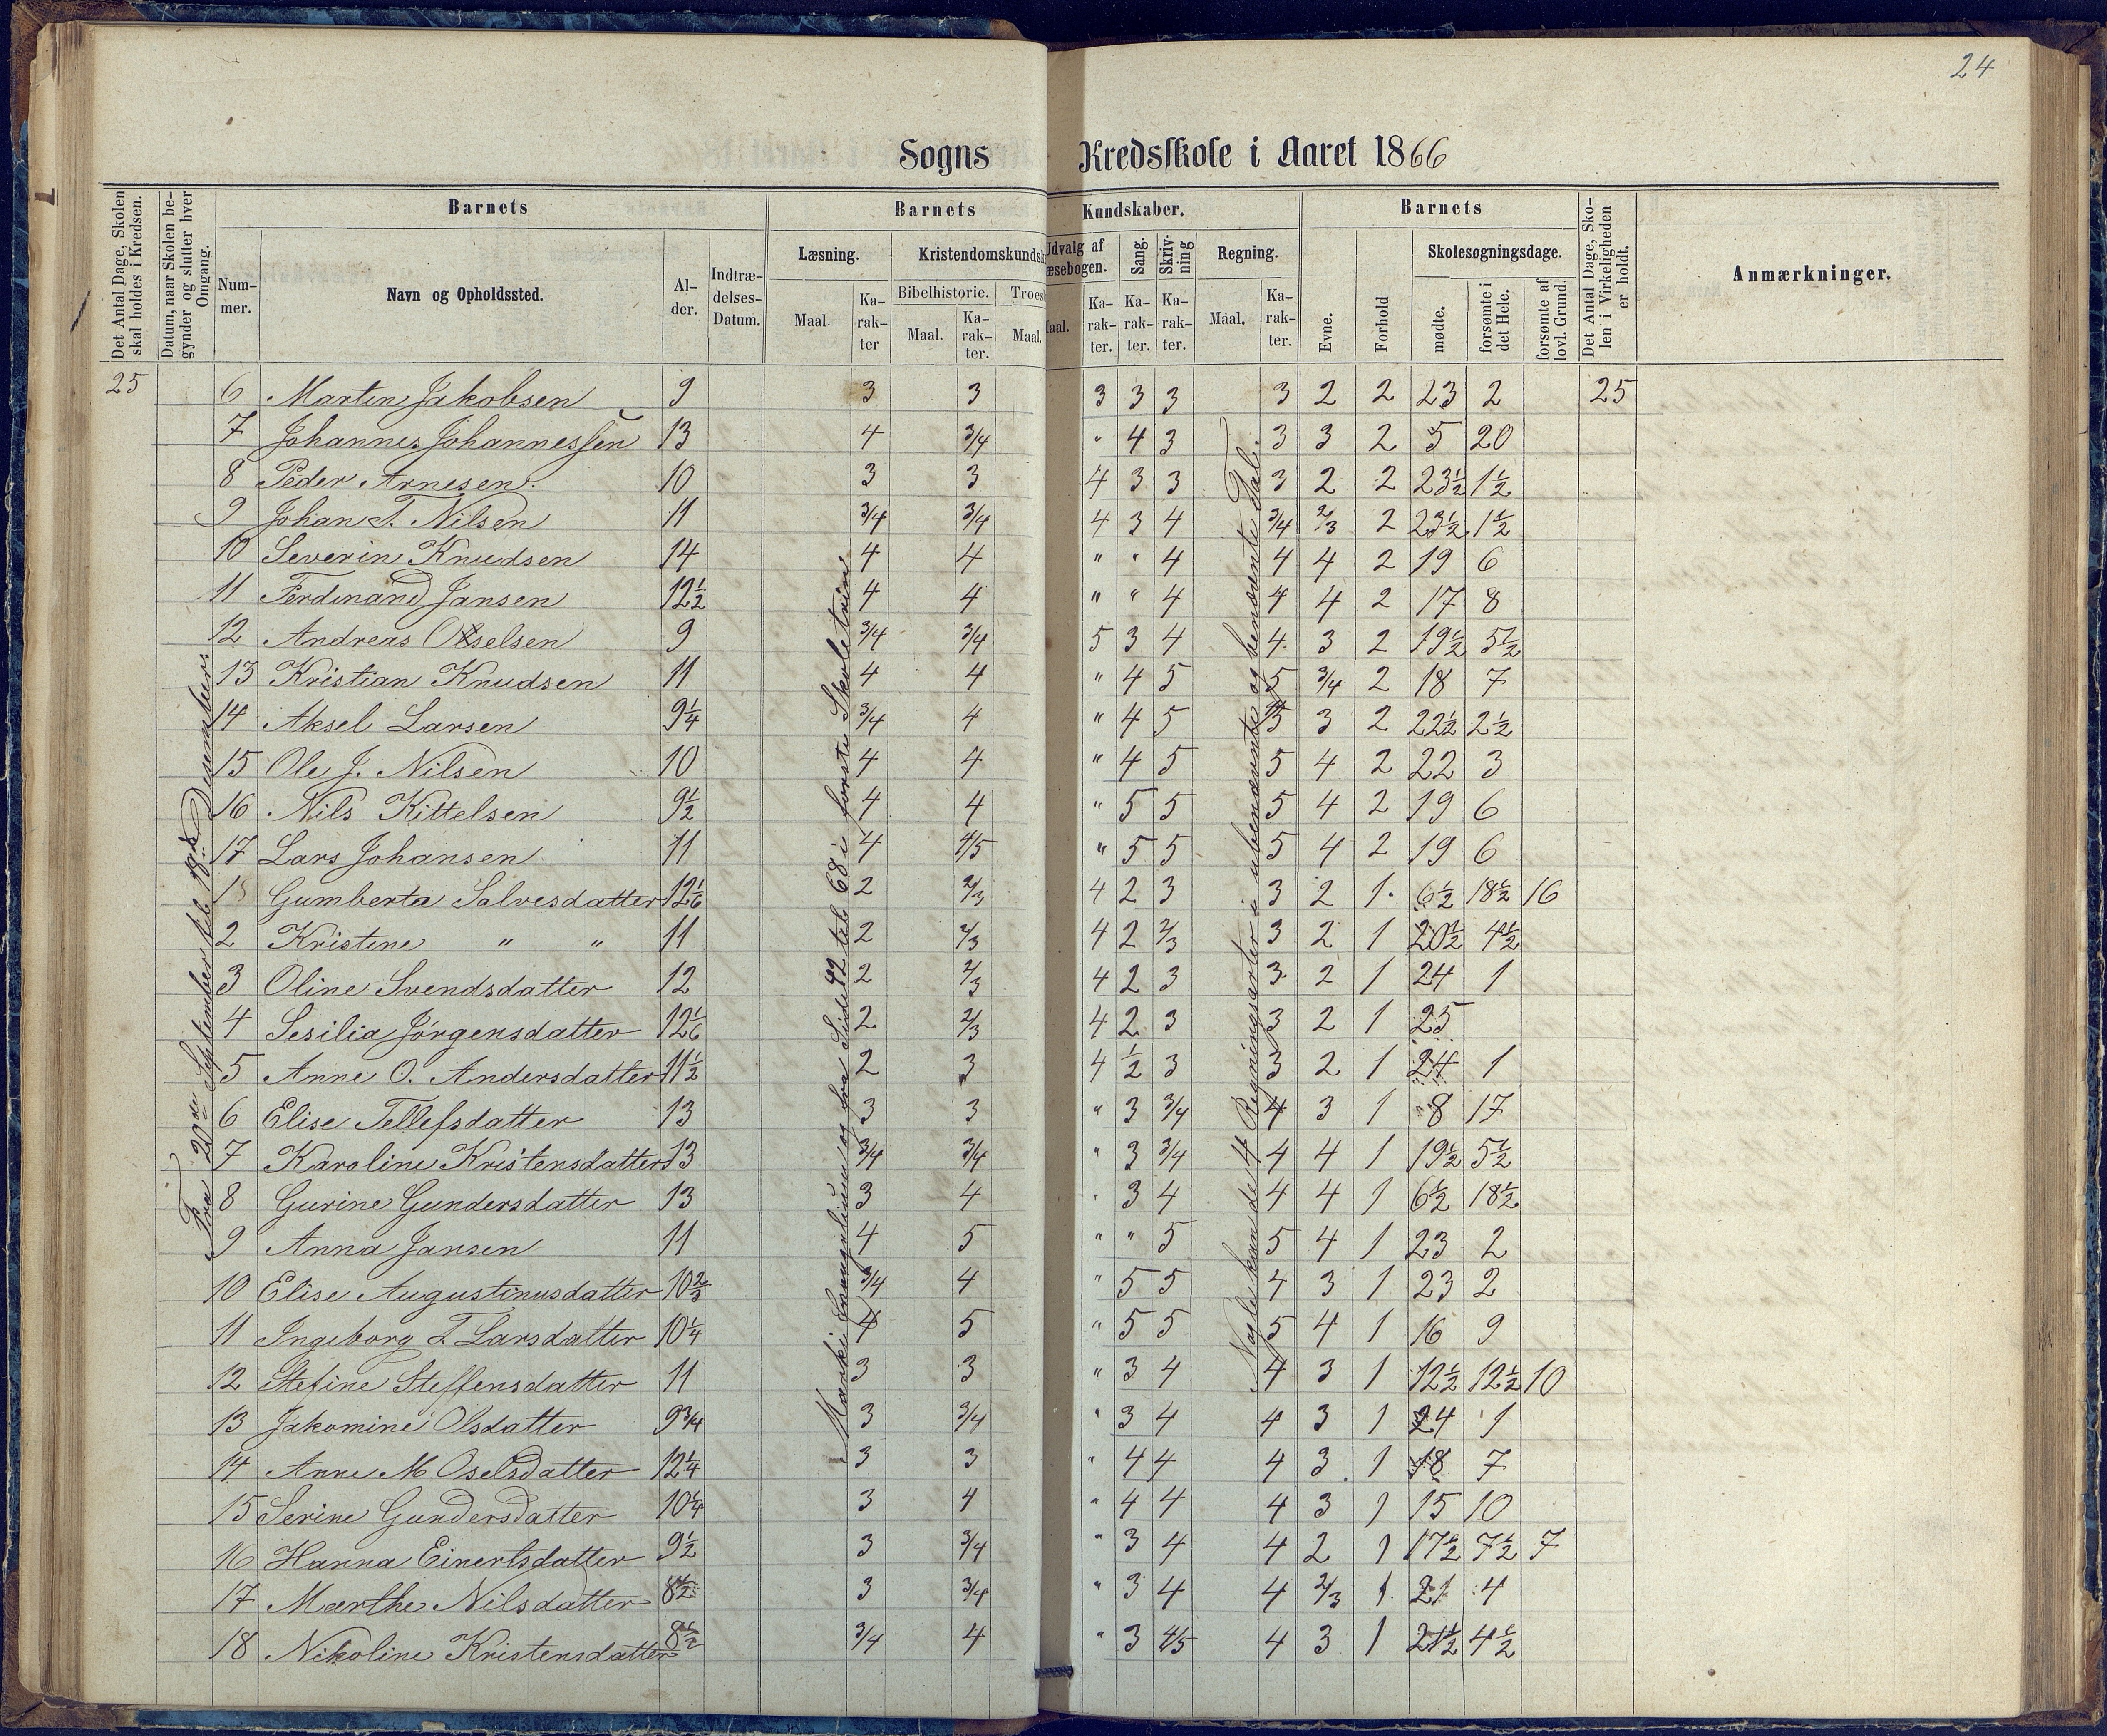 24
Sogns Kredsskole i Aaret 1866
Det Antal Dage, Skolen skal holdes i Kredsen.
Datum, naar Skolen begynder og slutter hver Omgang.
Barnets
Nummer.
Navn og Opholdssted.
Alder.
Indtrædelses-Datum.
Barnets Kundskaber.
Læsning.
Maal.
Karakter
Kristendomskundsk
Bibelhistorie.
Maal.
Karakter.
Troes
Maal.
Udvalg af
æsebogen.
aal.
Karakter.
Sang.
Karakter.
Skrivning
Karakter.
Regning.
Maal.
Karakter.
Barnets
Evne.
Forhold
Skolesøgningsdage.
mødte.
forsømte i det Hele.
forsømte af lovl. Grund.
Det Antal Dage, Skolen i Virkeligheden er holdt.
Anmærkninger.
25 6 Martin Jakobsen 9 3 3 3 3 3 3 2 2 23 2 25
7 Johannes Johannessen 13 4 3/4 " 4 3 3 3 2 5 20
8 Peder Arnesen. 10 3 3 4 3 3 3 2 2 23½ 1½
9 Johan T. Nilsen 11 3/4 3/4 4 3 4 3/4 2/3 2 23½ 1½
10 Severin Knudsen 14 4 4 " " 4 4 4 2 19 6
11 Ferdinand Jansen 12½ 4 4 " " 4 4 4 2 17 8
12 Andreas Oselsen 9 3/4 3/4 5 3 4 4 3 2 19½ 5½
13 Kristian Knudsen 11 4 4 " 4 5 5 3/4 2 18 7
14 Aksel Larsen 9¼ 3/4 4 " 4 5 5 3 2 22½ 2½
15 Ole J. Nilsen 10 4 4 " 4 5 5 4 2 22 3
16 Nils Kittelsen 9½ 4 4 " 5 5 5 4 2 19 6
17 Lars Johansen 11 4 4/5 " 5 5 5 4 2 19 6
1 Gumberta Salvesdatter 12 1/6 2 2/3 4 2 3 3 2 1 6½ 18½ 16
2 Kristine " " 11 2 2/3 4 2 2/3 3 2 1 20½ 4½
3 Oline Svendsdatter 12 2 2/3 4 2 3 3 2 1 24 1
4 Sesilia Jørgensdatter 12 1/6 2 2/3 4 2 3 3 2 1 25
5 Anne O. Andersdatter 11½ 2 3 4 1/2 3 3 2 1 24 1
6 Elise Tellefsdatter 13 3 3 " 3 3/4 4 3 1 8 17
7 Karoline Kristensdatter 13 3/4 3/4 " 3 3/4 4 4 1 19½ 5½
8 Gurine Gundersdatter 13 3 4 " 3 4 4 4 1 6½ 18½
9 Anna Jansen 11 4 5 " " 5 5 4 1 23 2
10 Elise Augustinusdatter 10 2/3 3/4 4 " 5 5 4 3 1 23 2
11 Ingeborg T Larsdatter 10¼ 4 5 " 5 5 5 4 1 16 9
12 Stefine Steffensdatter 11 3 3 " 3 4 4 3 1 12½ 12½ 10
13 Jakomine Olsdatter 9¾ 3 3/4 " 3 4 4 3 1 24 1
14 Anne M Oselsdatter 12¼ 3 3 " 4 4 4 3 1 18 7
15 Serine Gundersdatter 10¼ 3 4 " 4 4 4 3 1 15 10
16 Hanna Einertsdatter 9½ 3 3/4 " 3 4 4 2 1 17½ 7½ 7
17 Marthe Nilsdatter 8½ 3 3/4 " 3 4 4 2/3 1 21 4
18 Nikoline Kristensdatter 8½ 3/4 4 " 3 4/5 4 3 1 21½ 4½
Fra 20de September til 18de Desembers
Marki Evangelium og fra Side 42 til 68 i første Skoletrin
Nogle kan de 4 Regningsarter i ubenævnte og benævnte Tal.